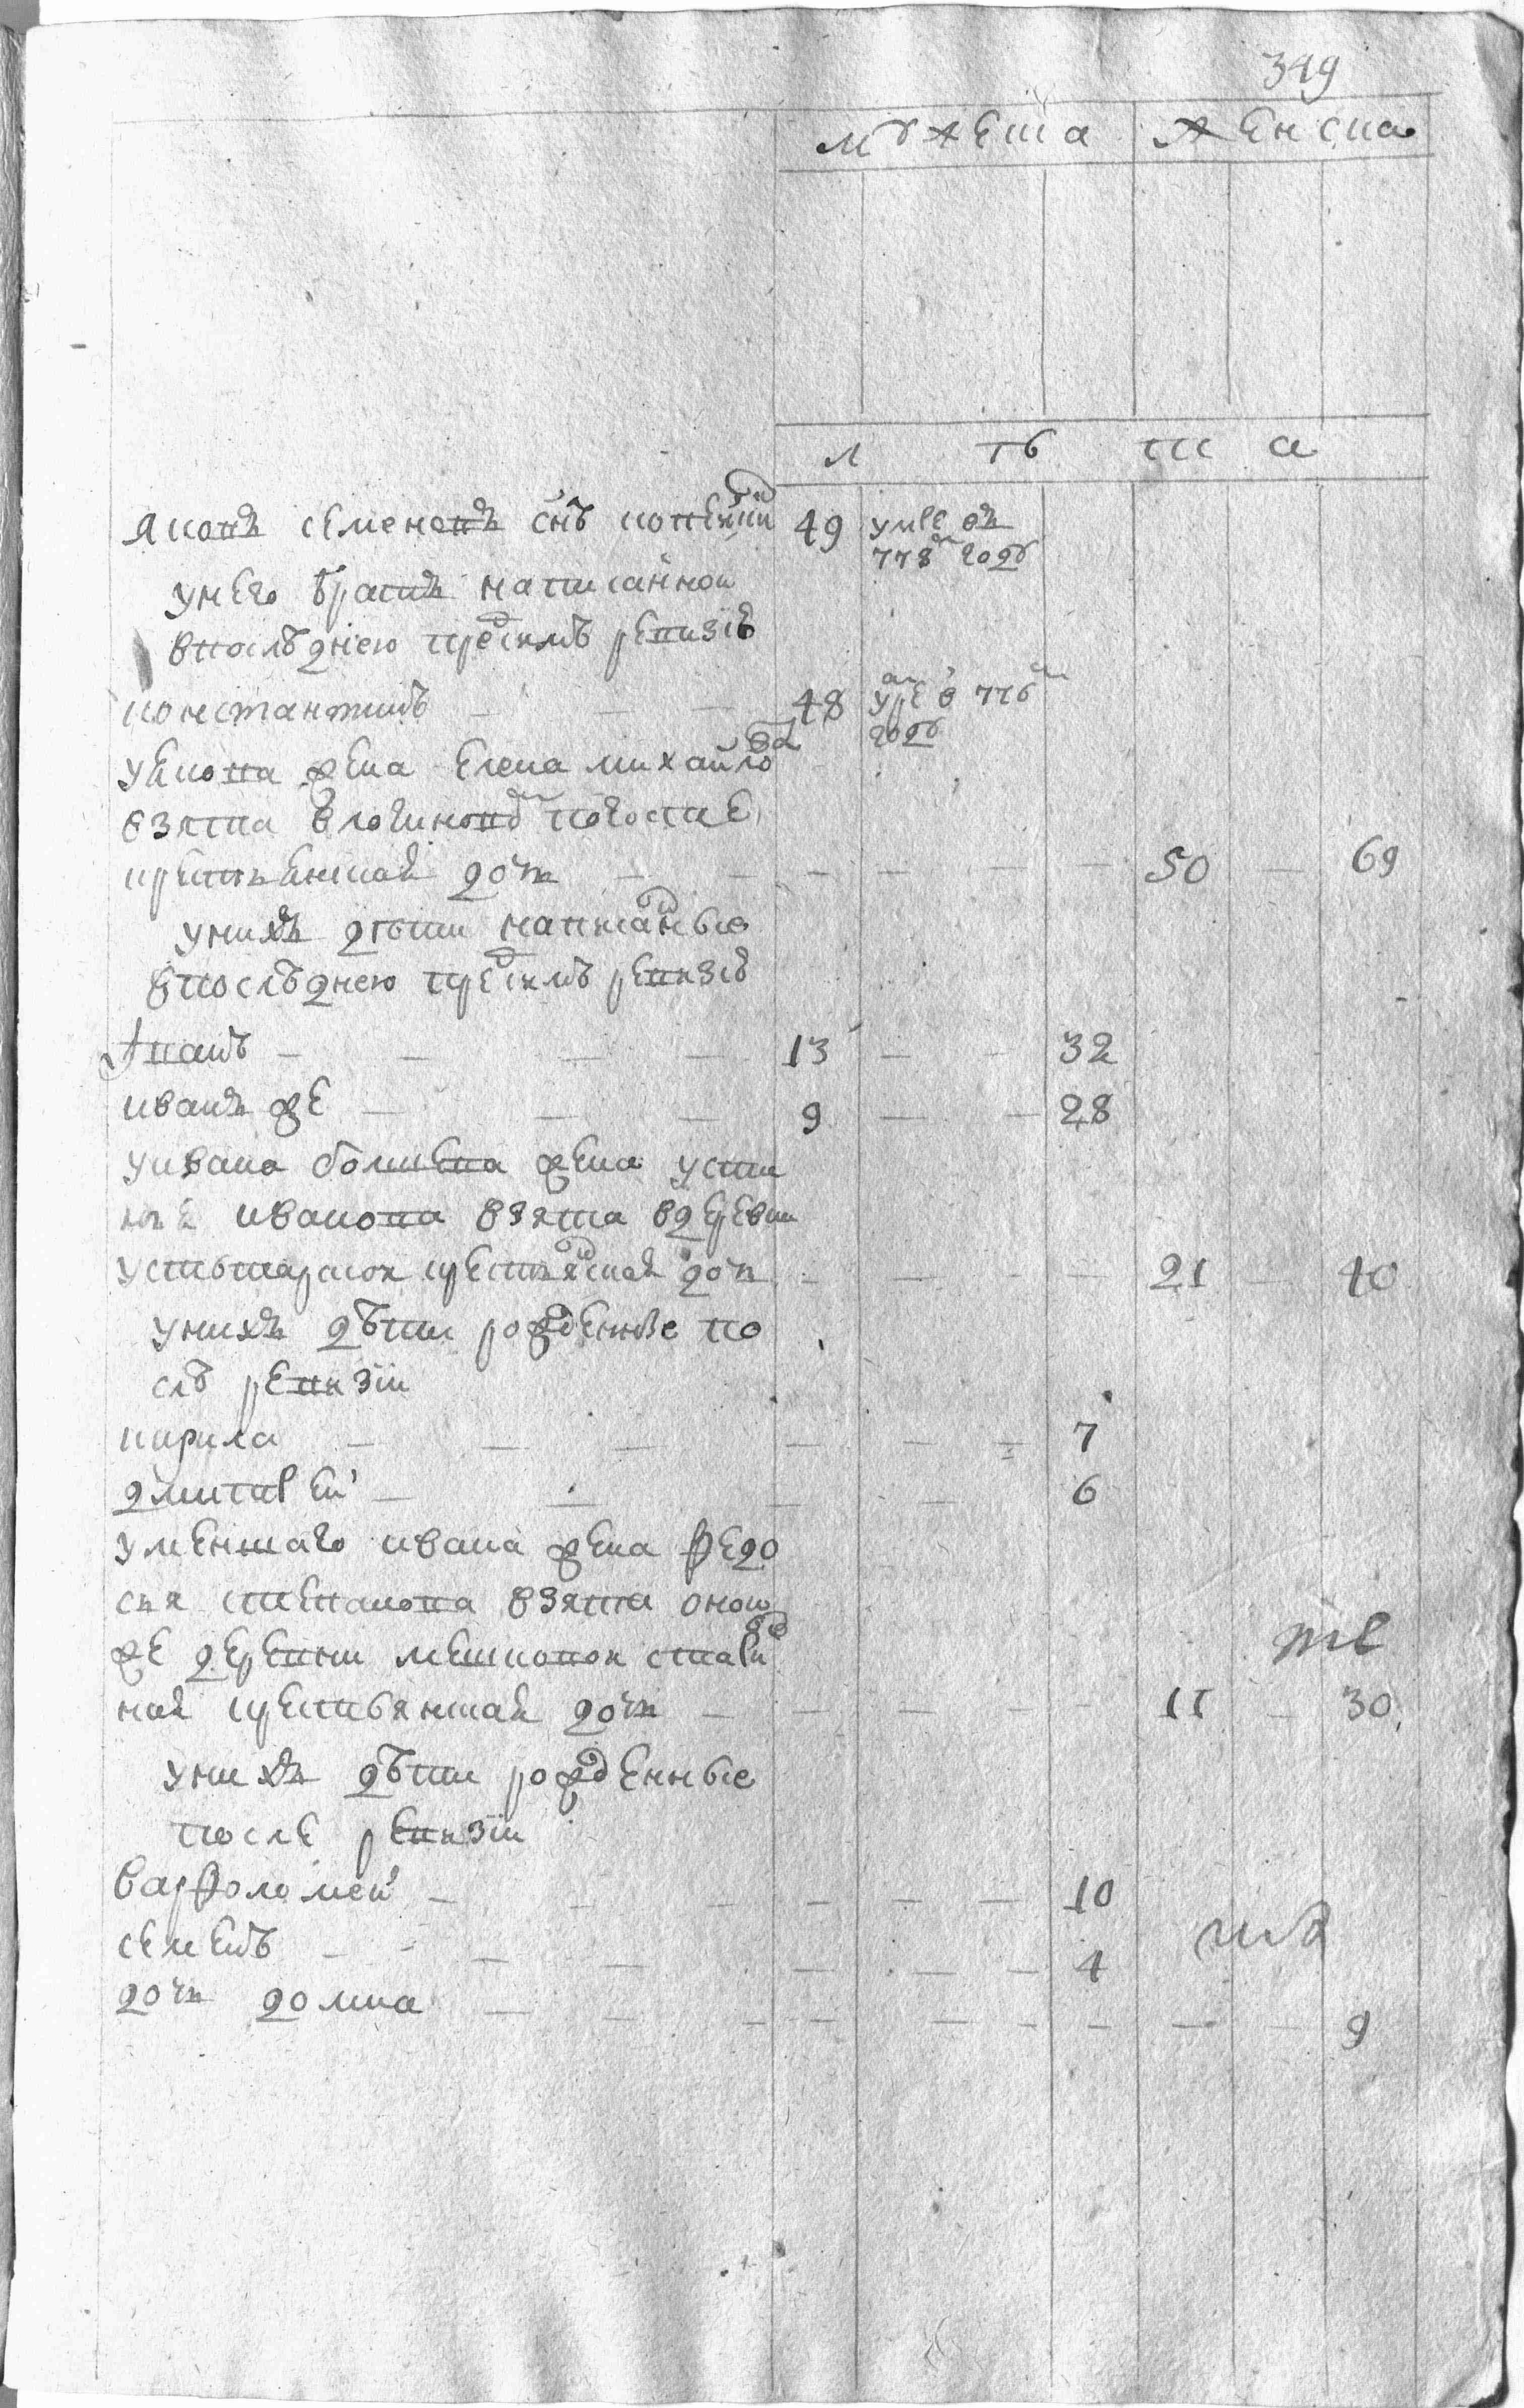 349
мужеска женска
л ѣ т а
яковъ семеновъ снъ копейкин 49 умре въ
778м году
унего братъ написанной
впоследнею пред симъ ревизiѣ
константинъ — — — 48 умре в 776м
году
уякова жена елена михайлова
взята
погосте
крестьянская дочь — — — — — — 50 — 69
унихъ дѣти написанные
впослѣднею пред симъ ревизiѣ
Iванъ — — — — 13 — — 32
иванъ же — — — 9 — — 28
уивана болшева жена усти
нья иванова взята вдеревни
крестьянская дочь — — — — 21 — 40
унихъ дѣти рожденные по
слѣ ревизiи
кирила — — — — — — 7
дмитрей — — — — 6
уменшаго ивана жена федо
сья степанова взята оной
же деревни
ная крестьянская дочь — — — — — 11 — 30
унихъ дѣти рожденные
после ревизiи
варфоломей — — — — — — 10
семенъ — — — — — — — 4
дочь домна — — — — — — — — — 9